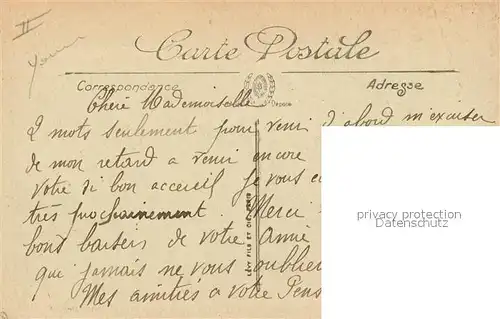 II
Carte Postale
Correspondance
Adresse
Chère Mademoiselle
Déposé
2 mots seulement pour venir d'abord m'excuser
de mon retard a venir encore
votre si bon accueil je vous
très prochainement. Merci
bons baisers de votre Amie
qui jamais ne vous oublier
Mes amitiés a votre
LÉVY FILS ET CIE, PARIS
privacy protection
Datenschutz